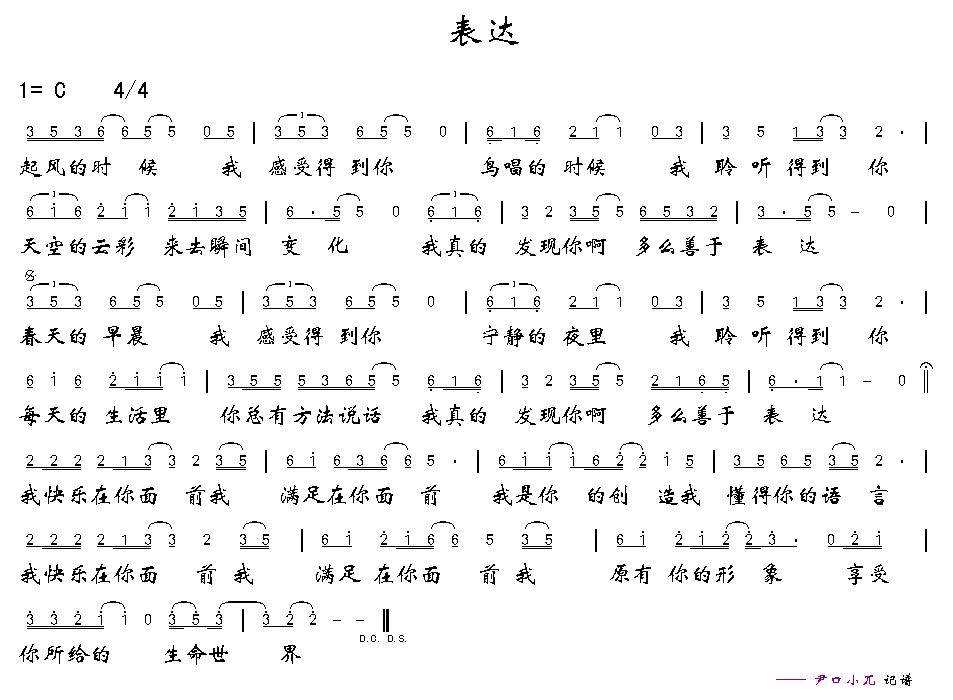 表达
1= C 4/4
3 5 3 6 6 5 5 0 5 | 3 5 3 6 5 5 0 | 6 1 6 2 1 1 0 3 | 3 5 1 3 3 2 · |
起风的时 候 我 感受得 到你 鸟唱的 时候 我 聆 听 得到 你
6 i 6 2 i i 2 i 3 5 | 6 · 5 5 0 6 1 6 | 3 2 3 5 5 6 5 3 2 | 3 · 5 5 – 0 |
天空的云彩 来去瞬间 变 化 我真的 发现你啊 多么善于 表 达
3 5 3 6 5 5 0 5 | 3 5 3 6 5 5 0 | 6 1 6 2 1 1 0 3 | 3 5 1 3 3 2 · |
春天的 早晨 我 感受得 到你 宁静的 夜里 我 聆 听 得到 你
6 i 6 2 i i i | 3 5 5 5 3 6 5 5 6 1 6 | 3 2 3 5 5 2 1 6 5 | 6 · 1 1 – 0 ||
每天的 生活里 你总有方法说话 我真的 发现你啊 多么善于 表 达
2 2 2 2 1 3 3 2 3 5 | 6 i 6 3 6 6 5 · | 6 i i i 6 2 2 i 5 | 3 5 6 5 3 5 2 · |
我快乐在你面 前我 满足在你面 前 我是你 的创 造我 懂得你的语 言
2 2 2 2 1 3 3 2 3 5 | 6 i 2 i 6 6 5 3 5 | 6 i 2 i 2 2 3 · 0 2 i |
我快乐在你面 前 我 满足 在你面 前 我 原有 你的形 象 享受
3 3 2 i i 0 3 5 3 | 3 2 2 – – ||
D.C. D.S.
你所给的 生命世 界
—— 尹口小兀 记谱